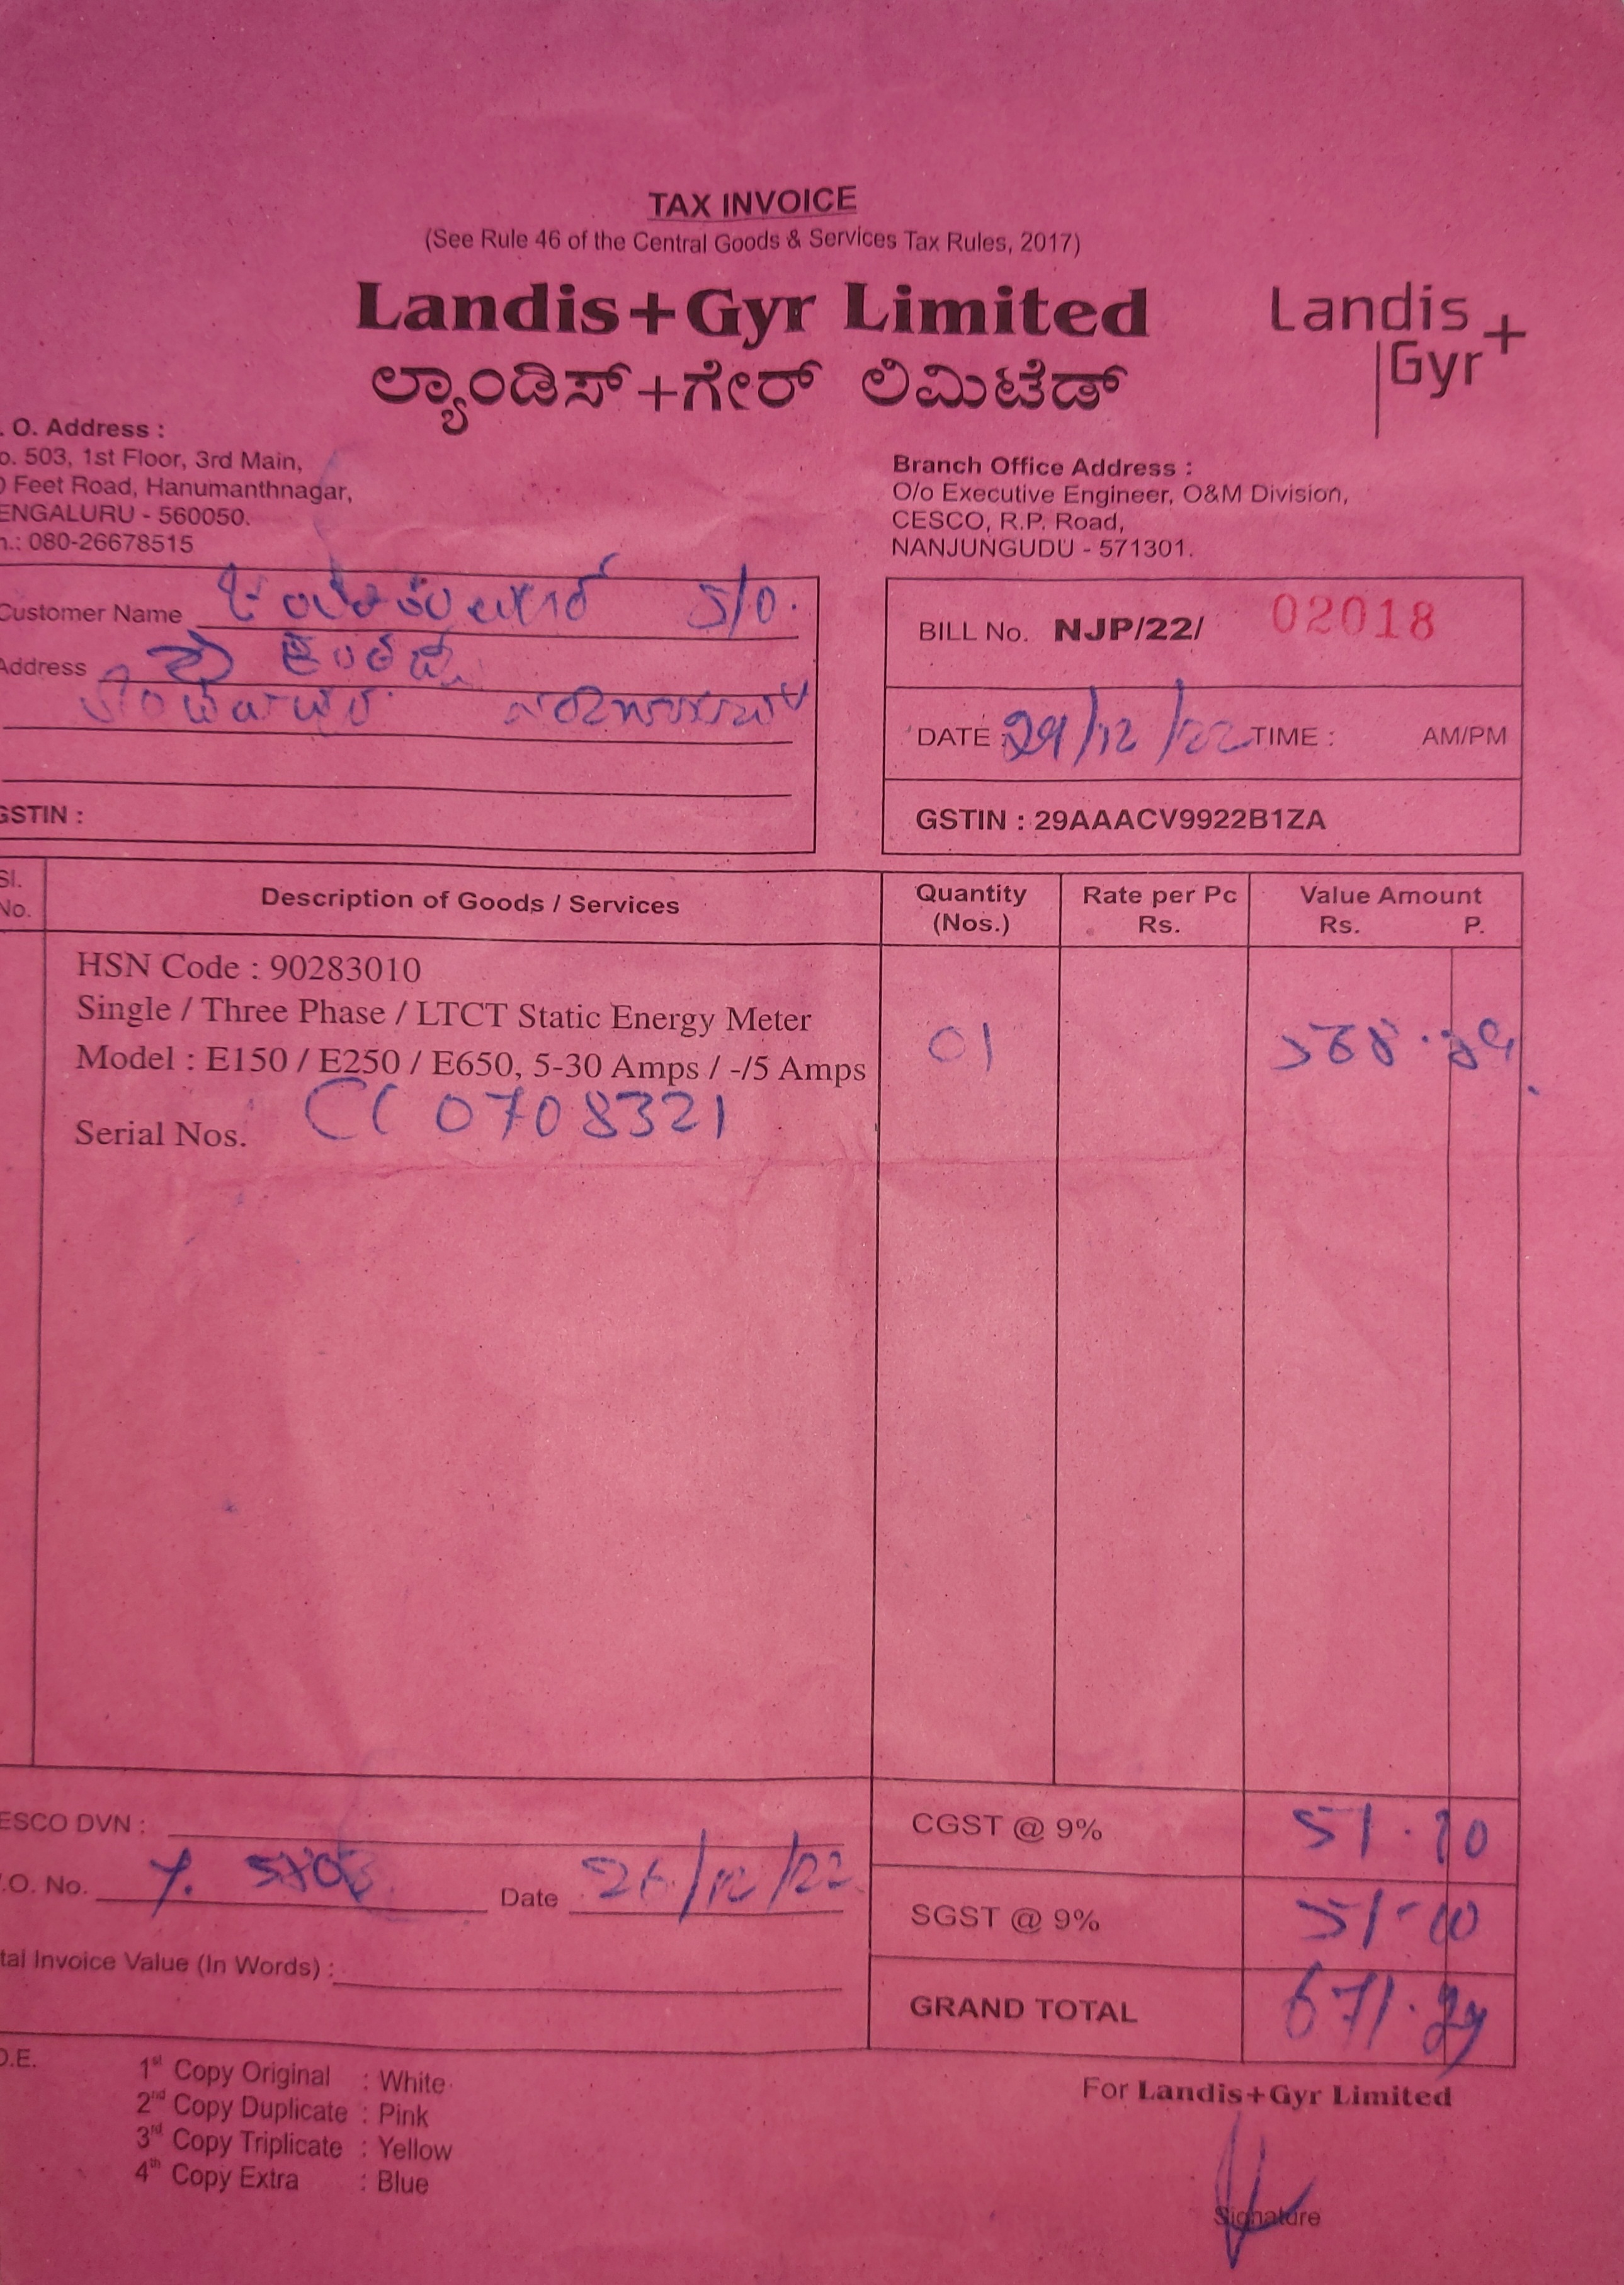 TAX INVOICE
(See Rule 46 of the Central Goods & Services Tax Rules, 2017)
Landis+Gyr Limited
ಲ್ಯಾಂಡಿಸ್+ಗೇರ್ ಲಿಮಿಟೆಡ್
Landis+
Gyr
. O. Address :
o. 503, 1st Floor, 3rd Main,
0 Feet Road, Hanumanthnagar,
ENGALURU - 560050.
n.: 080-26678515
Branch Office Address :
O/o Executive Engineer, O&M Division,
CESCO, R.P. Road,
NANJUNGUDU - 571301.
Customer Name S/O.
Address
GSTIN :
BILL No. NJP/22/ 02018
DATE : 29/12/22 TIME : AM/PM
GSTIN : 29AAACV9922B1ZA
Sl. No.
Description of Goods / Services
Quantity (Nos.)
Rate per Pc Rs.
Value Amount Rs. P.
HSN Code : 90283010
Single / Three Phase / LTCT Static Energy Meter
Model : E150 / E250 / E650, 5-30 Amps / -/5 Amps
01
Serial Nos. CC0708321
ESCO DVN :
.O. No. Date 26/12/22
tal Invoice Value (In Words) :
CGST @ 9% 51.20
SGST @ 9%
GRAND TOTAL
O.E.
1st Copy Original : White
2nd Copy Duplicate : Pink
3rd Copy Triplicate : Yellow
4th Copy Extra : Blue
For Landis+Gyr Limited
Signature